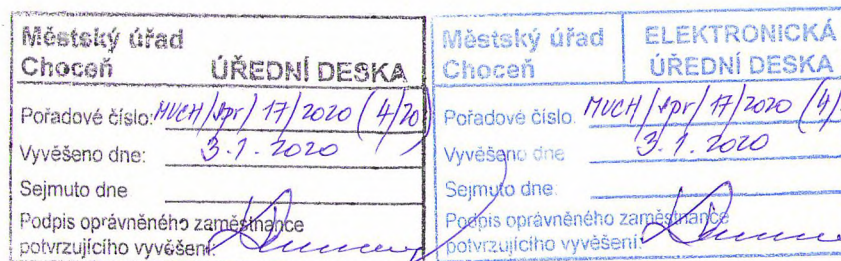 Městský úřad
Choceň ÚŘEDNÍ DESKA
Pořadové číslo: MUCH/spr/17/2020 (4/20)
Vyvěšeno dne: 3.1.2020
Sejmuto dne
Podpis oprávněného zaměstnance
potvrzujícího vyvěšení:
Městský úřad ELEKTRONICKÁ
Choceň ÚŘEDNÍ DESKA
Pořadové číslo. MUCH/spr/17/2020 (4/
Vyvěšeno dne 3.1.2020
Sejmuto dne:
Podpis oprávněného zaměstnance
potvrzujícího vyvěšení: